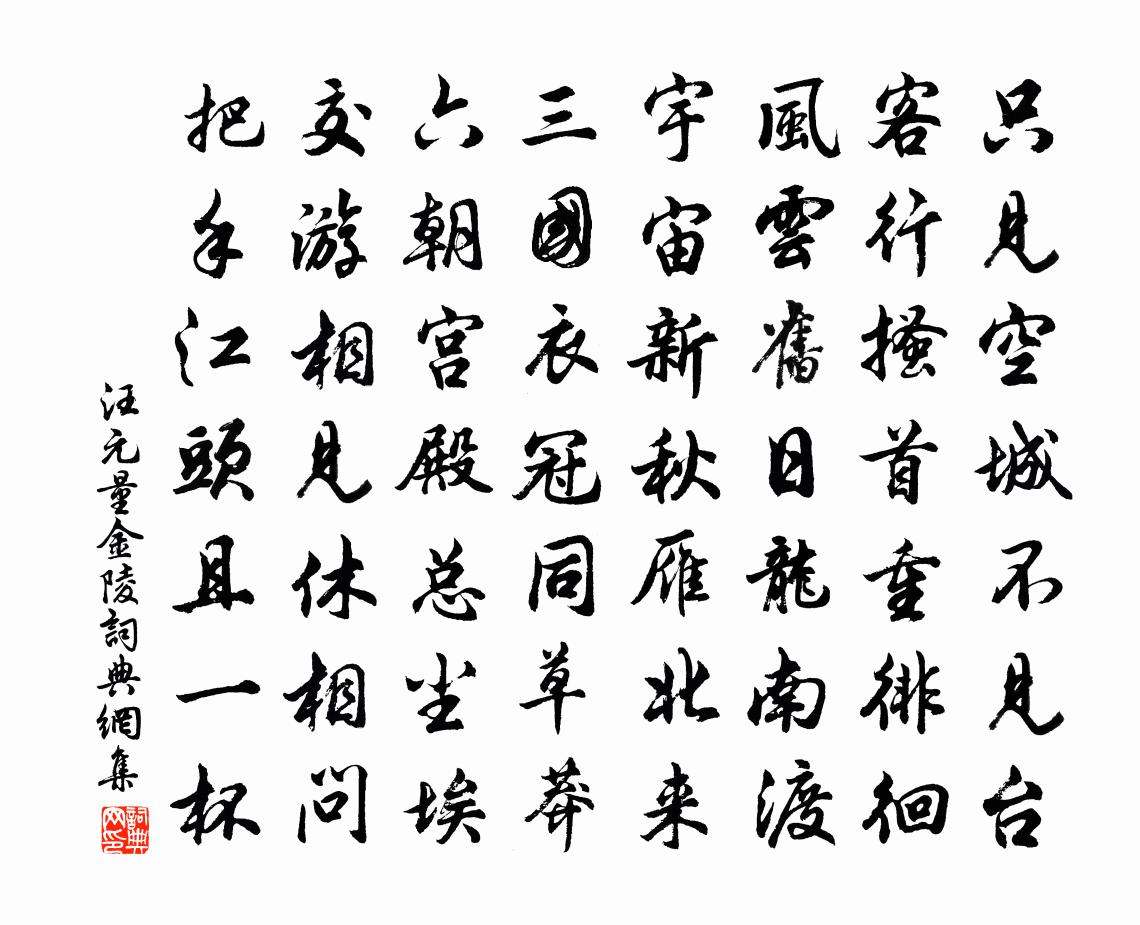 只見空城不見台
客行搔首重徘徊
風雲舊日龍南渡
宇宙新秋雁北来
三國衣冠同草莽
六朝宮殿总尘埃
交游相見休相問
把手江頭且一杯
汪元量金陵詞典網集
詞典网印